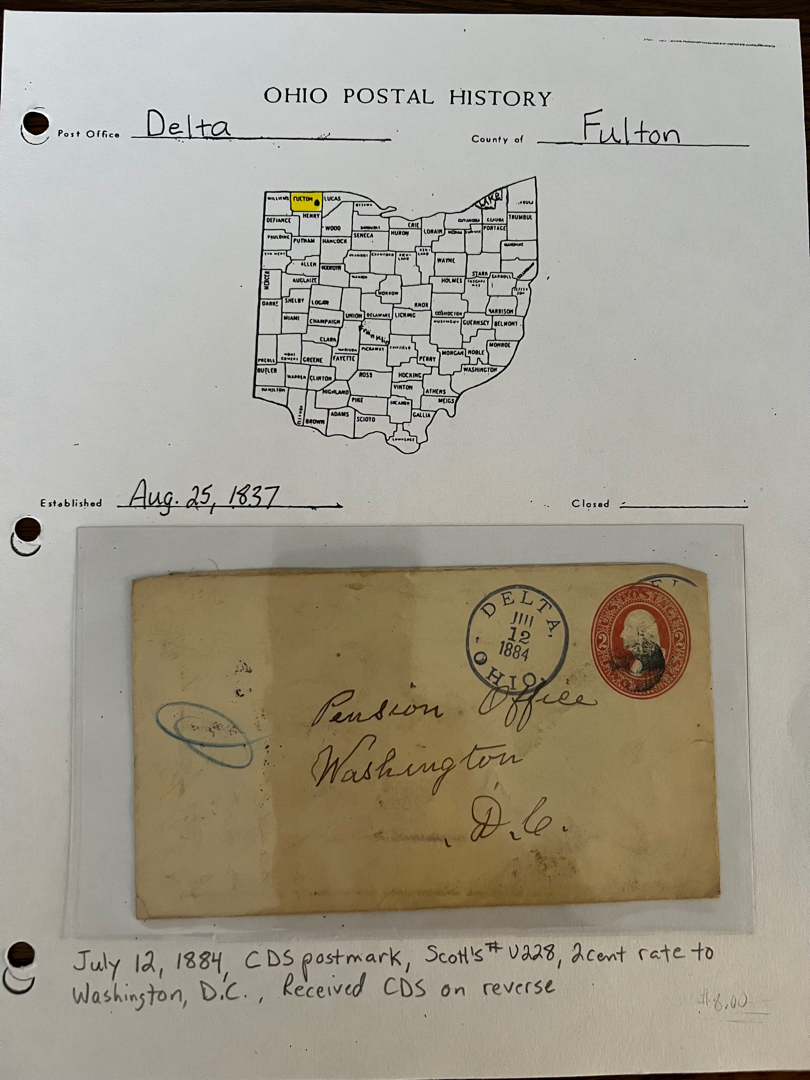 OHIO POSTAL HISTORY
Post Office Delta County of Fulton
WILLIAMS FULTON LUCAS OTTAWA
DEFIANCE HENRY WOOD ERIE CUYAHOGA GEAUGA TRUMBULL
LAKE
PAULDING PUTNAM HANCOCK SENECA HURON LORAIN PORTAGE
ALLEN WAYNE
MERCER AUGLAIZE MORROW HOLMES STARK CARROLL
DARKE SHELBY LOGAN UNION DELAWARE KNOX LICKING COSHOCTON HARRISON
MIAMI CHAMPAIGN GUERNSEY BELMONT
Franklin
CLARK PICKAWAY MONROE
PREBLE GREENE FAYETTE PERRY MORGAN NOBLE
BUTLER WARREN CLINTON ROSS HOCKING WASHINGTON
HAMILTON HIGHLAND PIKE VINTON ATHENS MEIGS
BROWN ADAMS SCIOTO GALLIA
Established Aug. 25, 1837 Closed
DELTA.
12
1884
OHIO
Pension Office
Washington
D.C.
July 12, 1884, CDS postmark, Scott's # U228, 2cent rate to
Washington, D.C., Received CDS on reverse
$8.00